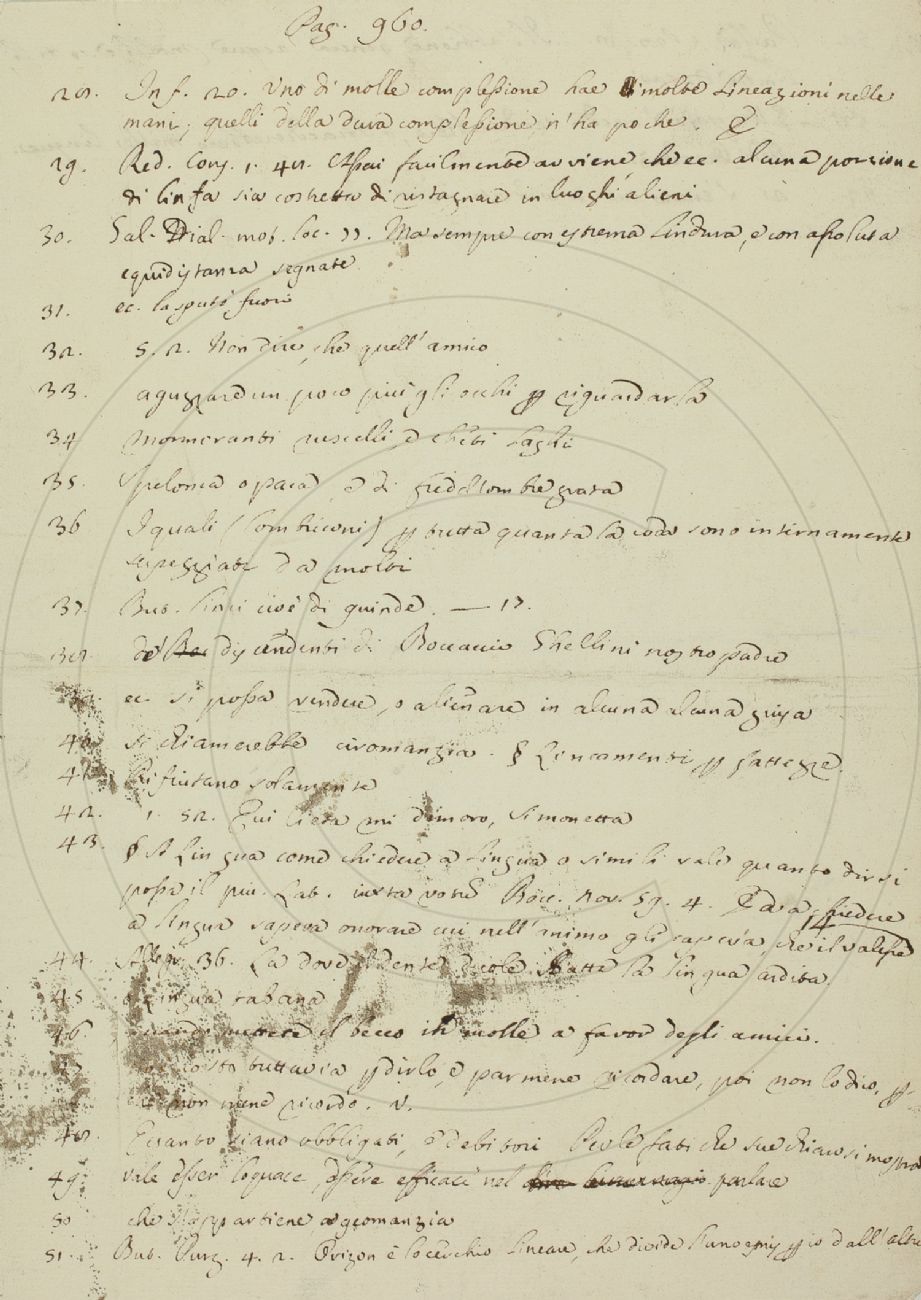 Pag. 960.
28. Inf. 20. Uno di molle complessione hae molte lineazioni nelle
mani; quelli della dura complessione n'ha poche.
29. Red. Cons. 1. 48. Assai facilmente avviene, che ec. alcuna porzione
di linfa sia costretta di ristagnare in luoghi alieni
30. Gal. Dial. mot. loc. 77. Ma sempre con estrema lindura, e con assoluta
equidistanza segnate
31. ec. la sputò fuori
32. 5. 2. Non dire, che quell'amico
33. aguzzare un poco più gli occhi p riguardarla
34 mormoranti ruscelli, e cheti laghi
35. Spelonca opaca, e di fredd'ombre grata
36 I quali (lombriconi) p tutta quanta la coda sono internamente
serpeggiati da molti
37. But. lini cioè di quinde. — 17.
38. de' discendenti di Boccaccio Ghellini nostro padre
ec. si possa vendere, o alienare in alcuna alcuna guisa
40 si chiamerebbe ciromanzia. § Lineamenti p fattezze.
41 Rifiutano solamente
42. 1. 52. Qui lieta mi dimoro, Simonetta
43. § A lingua come chiedere a lingua o simili vale quanto dirsi
possa il più. Lat. iuxta votu Bocc. nov. 59. 4. chiedere
a lingua sapeva onorare cui nell'animo gli capeva, che il valesse
44. Allegr. 36. La dove batte la lingua ardita.
45 lingua tabana
46 mettete il becco in molle a favor degli amici.
47 tuttavia p dirlo, e parmene ricordare, poi non lo dico, p
non mene ricordo. V.
48. Quanto siano obbligati, e debitori fatiche sue chiaro si mostra
49. vale esser loquace, essere efficace nel parlare
50 che s'appartiene a geomanzia
51. But. Purg. 4. 2. Orizon è lo cerchio lineare, che divide l'uno emisp io dall'altro